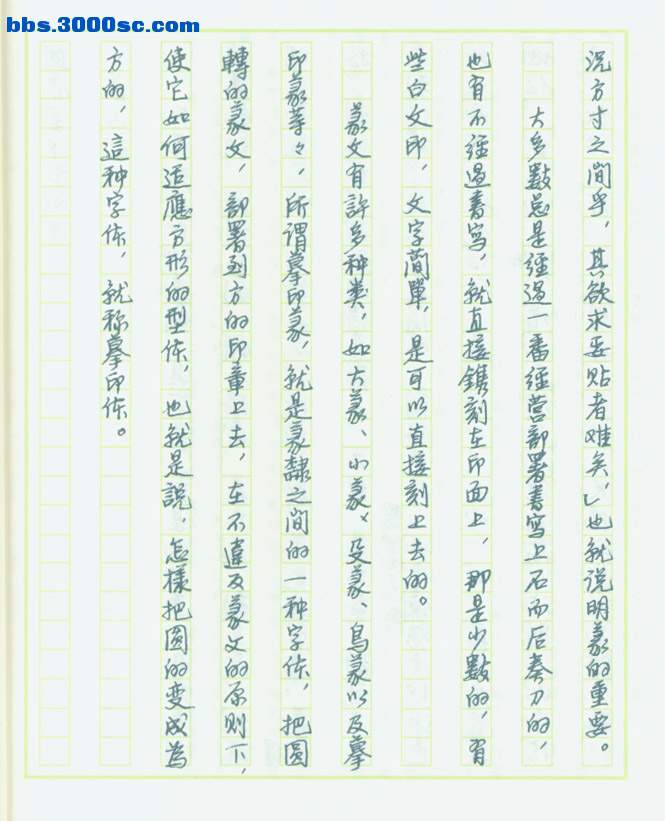 bbs.3000sc.com
况方寸之间乎，其欲求妥贴者难矣，」也就说明篆的重要。
大多數总是經過一番經营部署書写上石而后奏刀的，
也有不經過書写，就直接鐫刻在印面上，那是少數的，有
些白文印，文字简單，是可以直接刻上去的。
篆文有許多种类，如大篆、小篆、殳篆、鳥篆以及摹
印篆等々，所谓摹印篆，就是篆隸之间的一种字体，把圆
轉的篆文，部署到方的印章上去，在不違反篆文的原则下，
使它如何适應方形的型体，也就是説，怎樣把圆的变成為
方的，這种字体，就称摹印体。